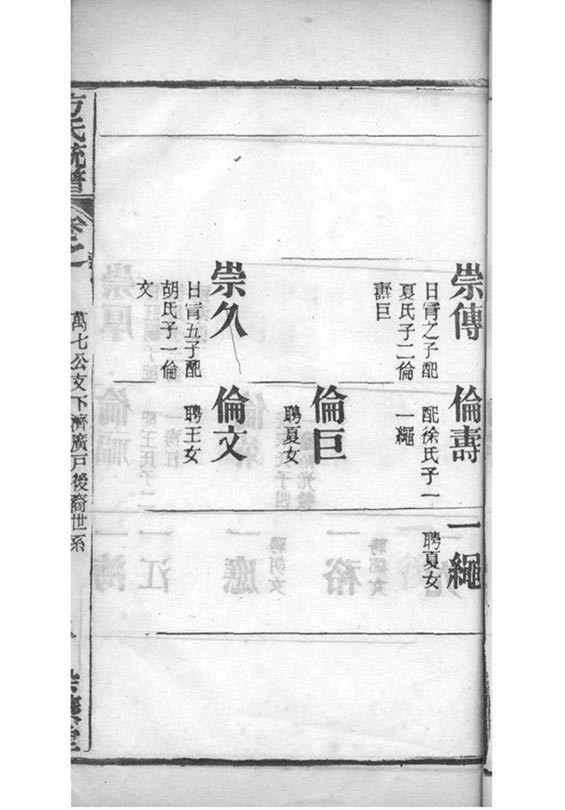 崇傳
日之子配
夏氏子二倫
壽巨
倫壽
配徐氏子一
一繩
一繩
聘夏女
倫巨
聘夏女
崇久
日五子配
胡氏子一倫
文
倫文
聘王女
方氏統譜
卷之
萬七公支下濟廣戶後裔世系